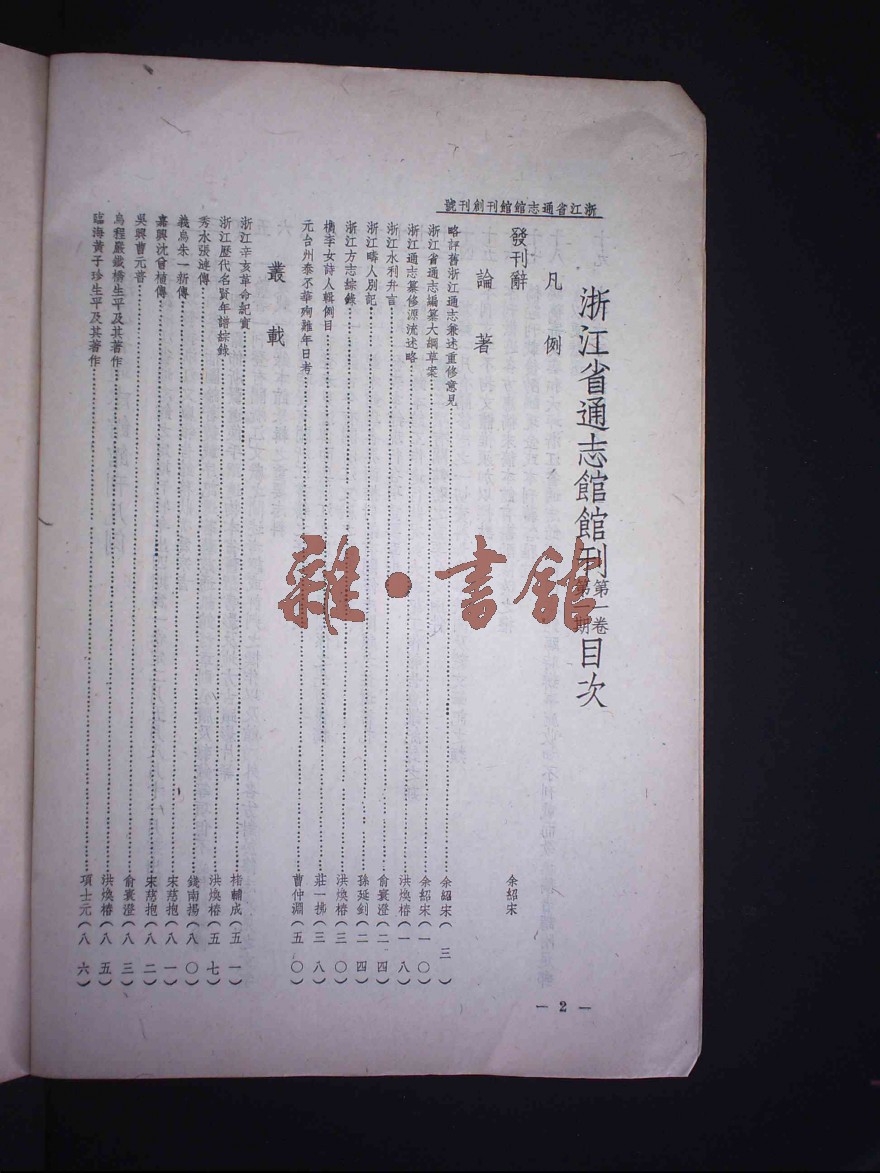 號刊創刊館館志通省江浙
浙江省通志館館刊第一卷第一期目次
凡例
發刊辭 余紹宋
論著
略評舊浙江通志兼述重修意見 余紹宋（三）
浙江省通志編纂大綱草案 余紹宋（一〇）
浙江通志纂修源流述略 洪煥椿（一八）
浙江水利芻言 俞寰澄（二四）
浙江疇人別記 孫延釗（二四）
浙江方志綜錄 洪煥椿（三〇）
檇李女詩人輯例目 莊一拂（三八）
元台州泰不華殉難年日考 曹仲淵（五〇）
叢載
浙江辛亥革命記實 楮輔成（五一）
浙江歷代名賢年譜綜錄 洪煥椿（五七）
秀水張漣傳 錢南揚（八〇）
義烏朱一新傳 宋慈抱（八一）
嘉興沈曾植傳 宋慈抱（八二）
吳興曹元 俞寰澄（八三）
烏程嚴鐵橋生平及其著作 洪煥椿（八五）
臨海黃子珍生平及其著作 項士元（八六）
— 2 —
雜·書館